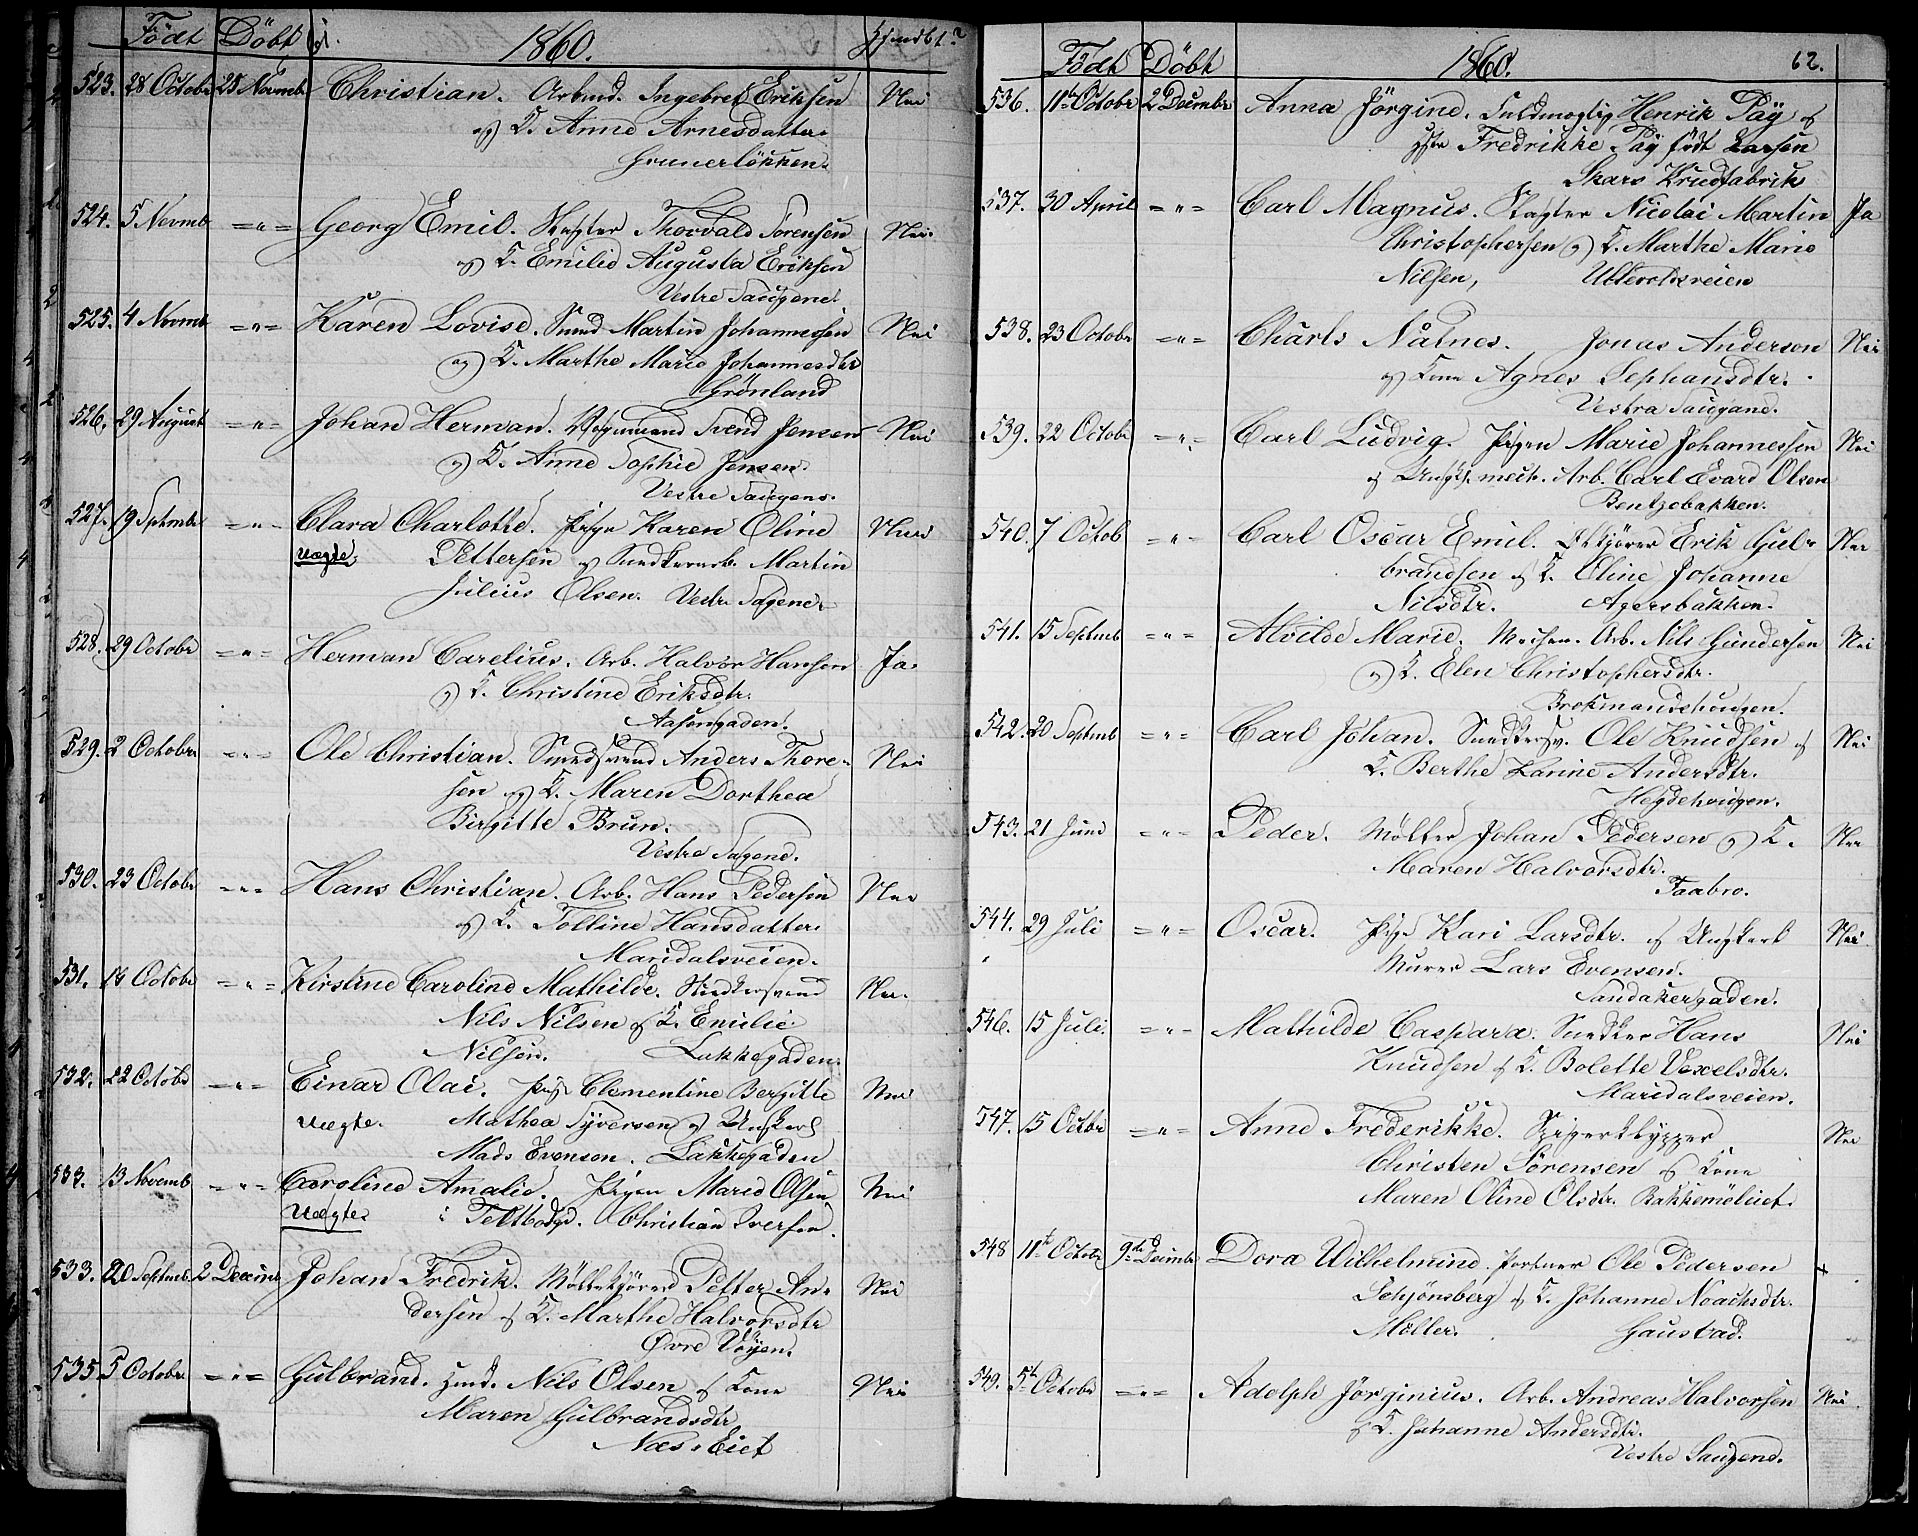 Födt Döbt 1860.
523. 28 Octobr 25 Novmb Christian. Arbmd. Ingebret Eriksen Nei
og K. Anne Arnesdatter.
Grunerløkken.
524. 5 Novmb =„= Georg Emil. Thorvald Sørensen Nei.
og K. Emilie Augusta Eriksen
Vestre Saugene.
525. 4 Novmb =„= Karen Lovise. Smed Martin Johannessen Nei
og K. Marthe Marie Johannesdtr
Grönland
526. 29 August =„= Johan Herman. Vognmand Svend Jensen Nei
og K. Anne Sophie Jensen.
Vestre Saugene.
527. 19 Sptmbr =„= Clara Charlotte. Pige Karen Oline Nei
uægte. Pettersen og Snedkerarb. Martin
Julius Olsen. Vestr Sagene.
528. 29 Octobr =„= Herman Carelius. Arb. Halvor Hansen Ja.
og K. Christine Eriksdtr.
Aasengaden.
529. 2 Octobr =„= Ole Christian. Smedsvend Anders Thore- Nei
sen og K. Maren Dorthea
Birgitte Brun.
Vestre Sagene.
530. 23 Octobr =„= Hans Christian. Arb. Hans Pedersen Nei
og K. Tolline Hansdatter.
Maridalsveien.
531. 18 Octobr =„= Kirstine Caroline Mathilde. Snedkersvend Nei.
Nils Nilsen og K. Emilie
Nilsen. Lakkegaden.
532. 22 Octobr =„= Einar Olai. Pige Clementine Bergitte Nei
uægte. Mathea Syversen og Ungkarl
Mads Evensen. Lakkegaden
533. 13 Novemb =„= Caroline Amalie. Pigen Marie Olsen Nei
Uægte. i Teltbodgd. Christian Iversen.
533. 20 Septmb. 2 Decemb Johan Fredrik. Möllekjører Petter An- Nei
dersen og K. Marthe Halvorsdtr
Øvre Vöyen.
535 5 October =„= Gulbrand. Hmd. Nils Olsen og Kone Nei
Maren Gulbrandsdtr
Næs Eiet
Födt Döbt 1860. 62.
536. 11te Octobr 2de Decembr Anna Jörgine. Fuldmægtig Henrik Påÿ og
Hstr Fredrikke Påÿ födt Larsen
Skars Krudfabrik
537. 30 April =„= Carl Magnus. Nicolai Martin Ja
Christophersen og K. Marthe Marie
Nilsen, Ullevoldsveien
538. 23 Octobr =„= Charls Natnes. Jonas Anderson Nei
og Kone Agnes Sephansdtr.
Vestra Saugane.
539. 22 Octobr =„= Carl Ludvig. Pigen Marie Johannessen Nei
og Ungk. mech. Arb. Carl Evard Olsen
Bentzebakken.
540. 7 Octob =„= Carl Oscar Emil. Erik Gul- Nei
brandsen og K. Oline Johanne
Nilsdtr. Agersbakken.
541. 15 Septmb =„= Alvilde Marie. Mechan. Arb. Nils Gundersen Nei
og K. Elen Christophersdtr.
Brokmandshougen.
542. 20 Septmb =„= Carl Johan. Snedkersv. Ole Knudsen og Nei
K. Berthe Karine Andersdtr.
Hegdehougen.
543. 21 Juni =„= Peder. Møller Johan Pedersen og K. Nei
Maren Halvorsdtr.
Faabro.
544. 29 Juli =„= Oscar. Pige Kari Larsdtr. og Ungkarl Nei
Murer Lars Evensen.
Sandakergaden.
546. 15 Juli. =„= Mathilde Caspara. Snedker Hans Nei
Knudsen og K. Bolette Vexelsdtr.
Maridalsveien.
547. 15 Octbr =„= Anne Frederikke. Spigerklypper Nei
Christen Sörensen og Kone
Maren Oline Olsdtr. Bakkemöleiet.
548 11te Octobr 9de Decembr Dora Wilhelmine. Portner Ole Pedersen +
Schjönsberg og K. Johanne Noachsdtr.
Möller. Gaustad.
549. 5te Octobr =„= Adolph Jörginius. Arb. Andreas Halvorsen Nei.
og K. Johanne Andersdtr.
Vestre Saugene.